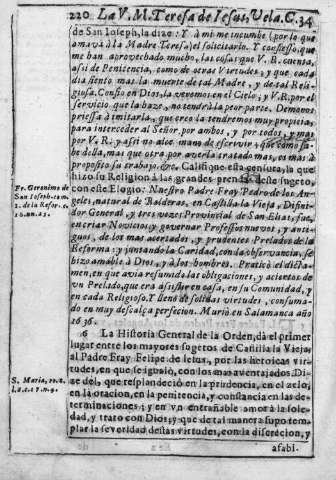 220 La V. M. Teresa de Iesus, Vela. C. 34
de San Ioseph, la dize: Y à mi me incumbe (por lo que
amava à la Madre Teresa) el solicitarlo. Y confiesso, que
me han aprovechado mucho, las cosas que V.R. cuenta,
assi de Penitencia, como de otras Virtudes; y que cada
dia siento mas la muerte de tal Madre, y de tal Religiosa. Confio en Dios, la veremos en el Cielo; y V.R. por el
servicio que la haze, no tendrà la peor parte. Demonos
priessa à imitarla, que creo la tendremos muy propicia,
para interceder al Señor, por ambos, y por todos, y mas
por V.R: y assi no alce mano de escrivir, que como sabe della, mas que otro por averla tratado mas, es mas à
proposito su trabajo. &c. Califique esta censura, la que
hizo su Religion à las grandes prendas deste sugeto,
con este Elogio: Nuestro Padre Fray Pedro de los Angeles, natural de Balderas, en Castilla la Vieja, Difinidor General, y tres vezes Provincial de San Elias, fue,
en criar Novicios, y governar Professos nuevos, y antiguos, de los mas acertados, y prudentes Prelados de la
Reforma: y juntando la Caridad, con la observancia, se
hizo amable à Dios, y à los hombres. Praticò el dictamen, en que avia resumido las obligaciones, y acientos de
vn Prelado, que era assistir en casa, en su Comunidad, y
en cada Religioso. Y lleno de solidas virtudes, consumado en muy descalça perfeccion. Muriò en Salamanca año
1636.
6 La Historia General de la Orden, dà el primer
lugar entre los mayores sugetos de Castilla la Vieja,
al Padre Fray Felipe de Iesus, por las heroicas virtudes, en que se igualò, con los mas aventajados. Dize dèl, que resplandeciò en la prudencia, en el zelo,
en la oracion, en la penitencia, y constancia en las determinaciones; y en vn entrañable amor à la soledad, y trato con Dios; y que de tal manera supo templar la severidad destas virtudes, con la discrecion, y
afabi-
Fr. Geronimo de
San Ioseph tom.
S. Maria, to. 2.